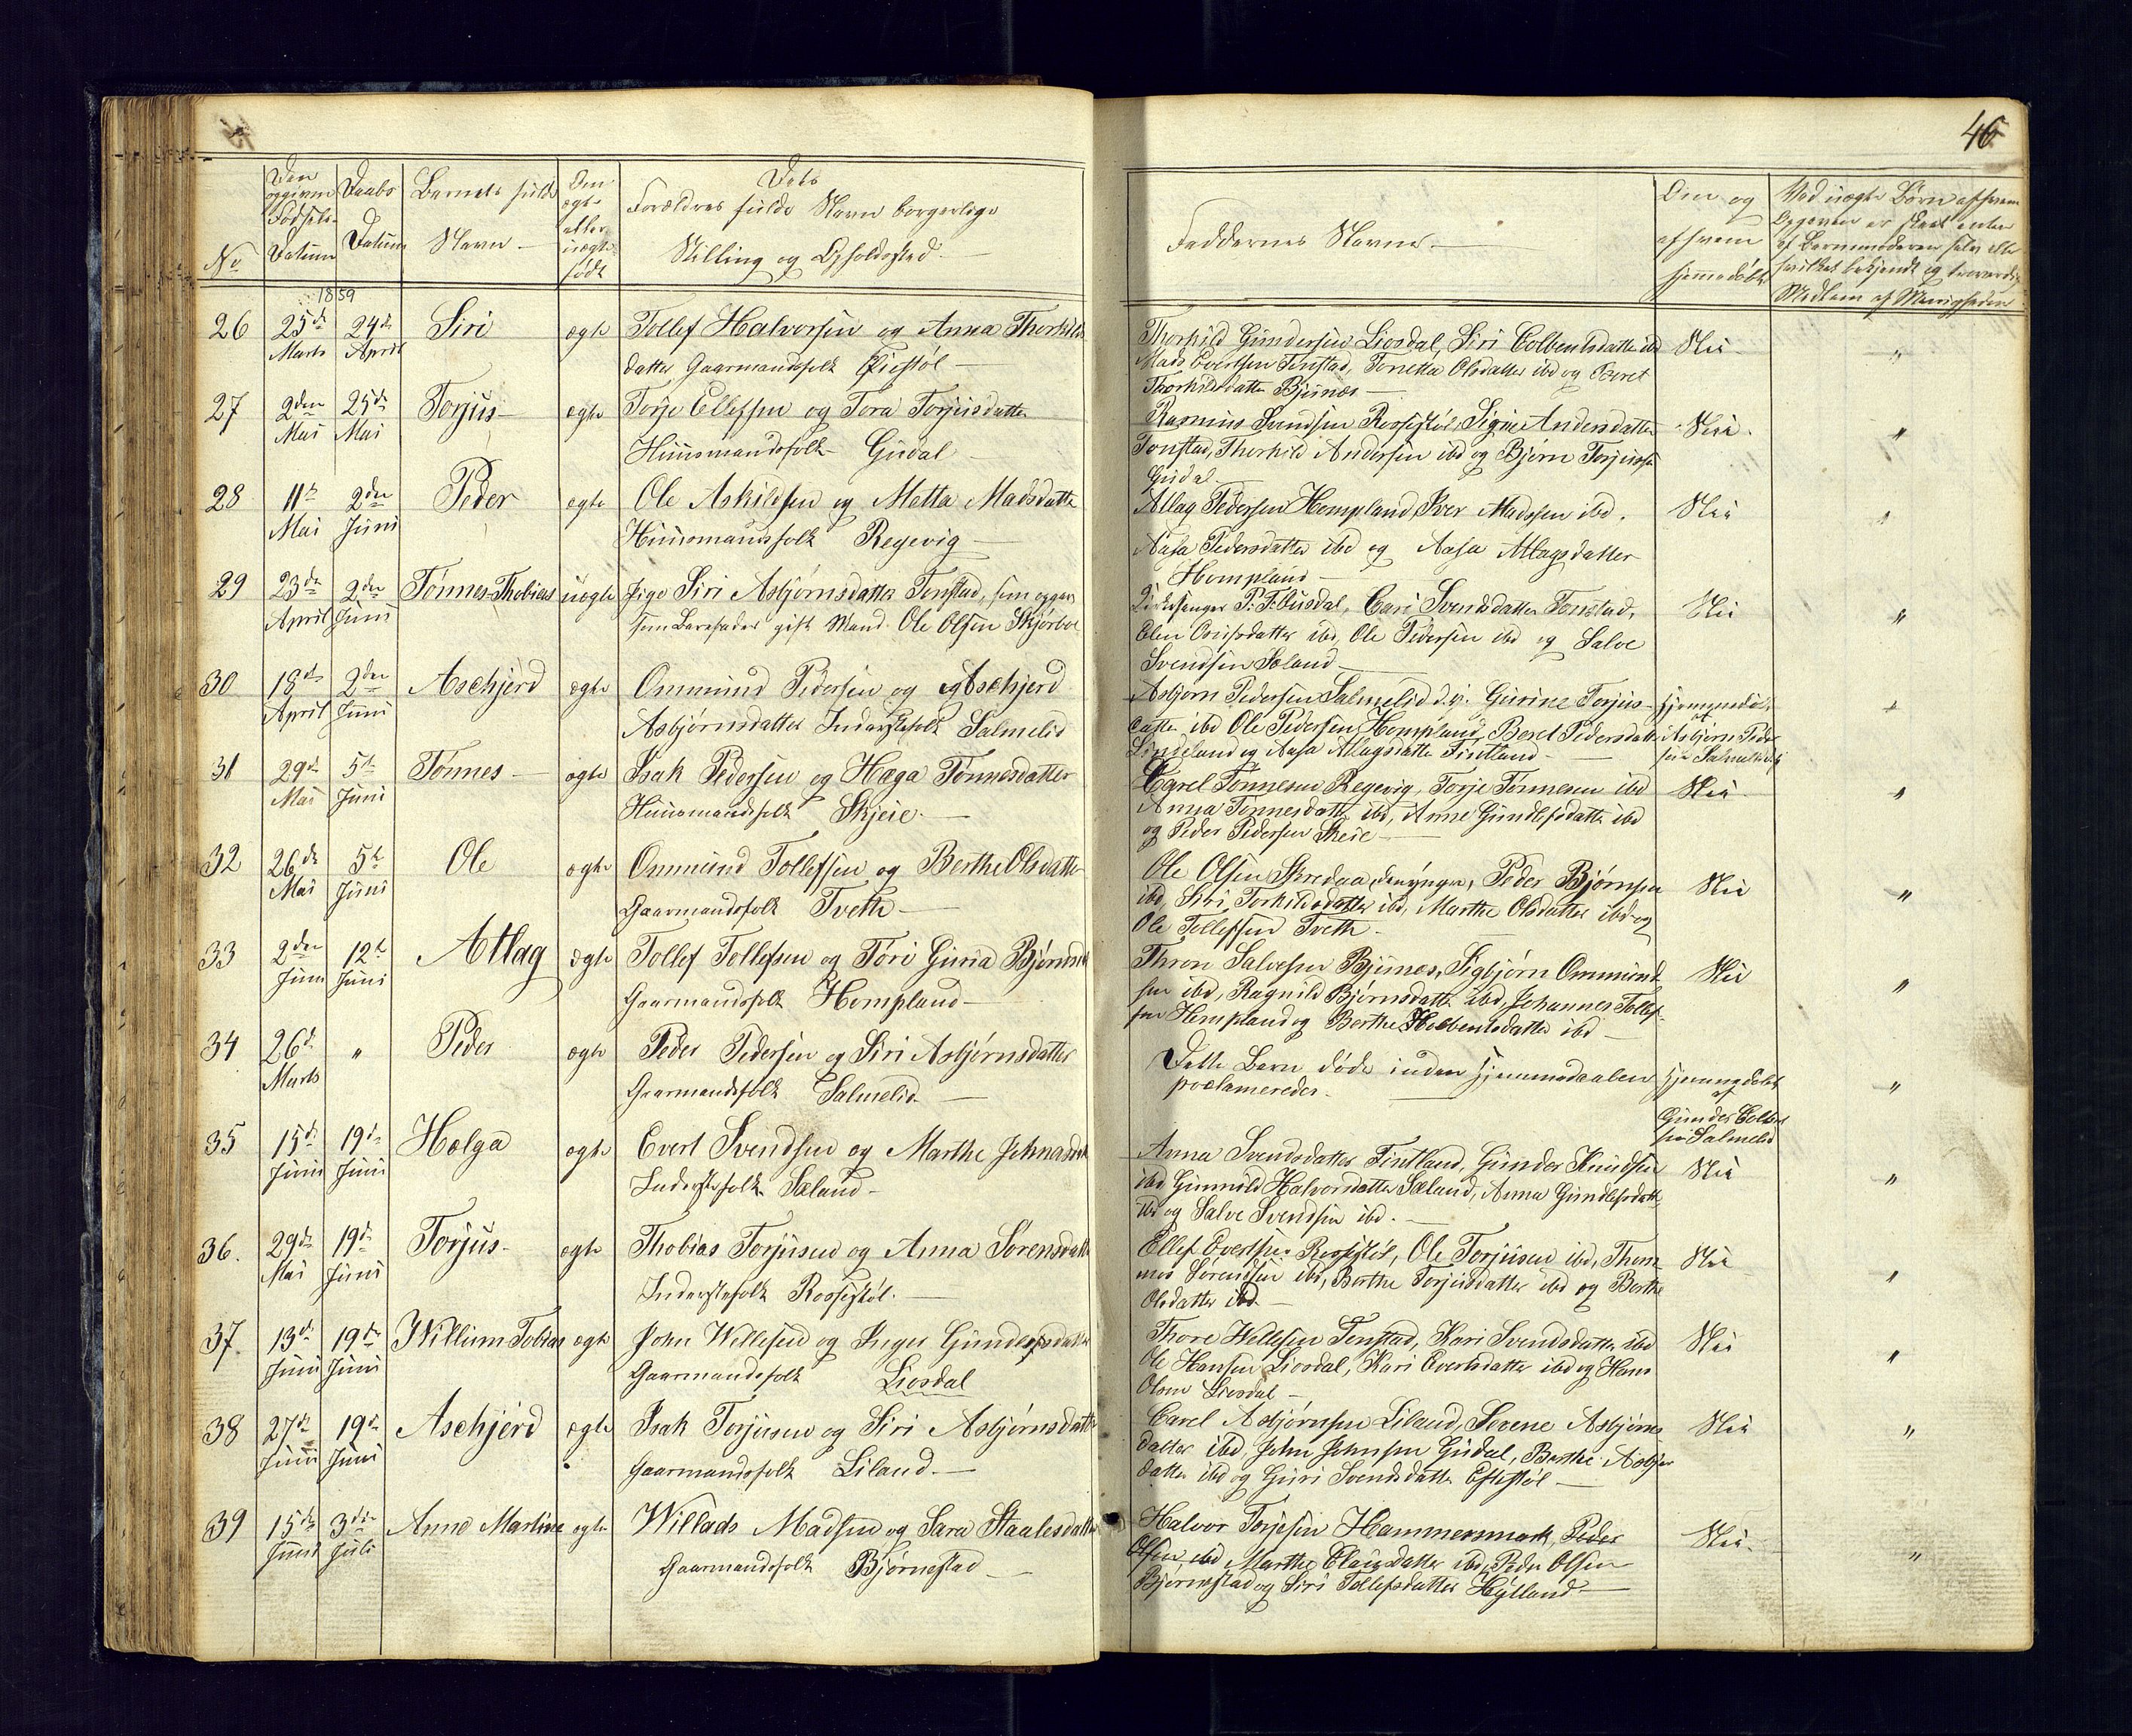 46
No
Den opgivne Fødsels-Datum
Daabs Datum
Barnets fulde Navn
Om ægte eller uægte født
Dets Forældres fulde Navn borgerlige Stilling og Opholdssted.
Faddernes Navne.
Om og af hvem hjemmedøbt
Ved uægte Børn af hvem
Opgaven er skeet enten
af Barnemoderen selv eller
hvilket bekjendt og troværdig
Medlem af Menigheden
1859
26 25de Marts 24de April Siri ægte Tollef Halvorsen og Anna Thorkilds
datter Gaarmandsfolk
Thorkild Gundersen Liosdal, Siri Colbentsdatter ibd
Mads Evertsen Tonstad, Tonetta Olsdatter ibd og Beret
Thorkildsdatter Bjunes
Nei "
27 2den Mai 25de Mai Torjus ægte Torje Ellefsen og Tora Torjusdatter
Huusmandsfolk Gudal
Rasmus Rossestøl, Signe Andersdatter
Tonstad, Thorkild Andersen ibd og Bjørn Torjussen
Gudal
Nei "
28 11te Mai 2den Juni Peder ægte Ole Askildsen og Metta Madsdatter
Huusmandsfolk Regevig
Atlag Pedersen Hompland, Iver Madssen ibd,
Aasa Pedersdatter ibd og Aasa Atlagsdatter
Hompland
Nei "
29 23de April 2den Juni Tønnes Thobias uægte Pige Siri Asbjørnsdatter Tonstad, som opgav
som Barnefader gift Mand Ole Olsen Skjørbæ
Kirkesanger P. F. Ousdal, Cari Svendsdatter Tonstad,
Elen ibd, Ole Pedersen ibd og Salve
Svendsen Sæland
Nei "
30 18de April 2den Juni Aschjerd ægte Ommund Pedersen og Aschjerd
Asbjørnsdatter Inderstefolk Salmelid
Asbjørn Pedersen Salmelid d.y. Gurine Torjus-
datter ibd Ole Pedersen Hompland, Beret Pedersdatter
Lindeland og Aasa Atlagsdatter Fintland
hjemmedøbt af Asbjørn Peder
sen Salmelid d.y.
"
31 29de Mai 5te Juni Tønnes ægte Isak Pedersen og Hæga Tønnesdatter
Huusmandsfolk Skjeie.
Carel Tønnesen Regevig, Torje Tønnesen ibd
Anna Tønnesdatter ibd, Anne Gundlefsdatter ibd
og Peder Pedersen Skeie
Nei "
32 26de Mai 5te Juni Ole ægte Ommund Tollefsen og Berthe Olsdatter
Gaarmandsfolk Tveth
Ole Olsen Skredaa, den yngre, Peder Bjørnsen
ibd, Siri Torkildsdatter ibd, Marthe Olsdatter ibd og
Ole Tollefsen Tveth
Nei "
33 2den Juni 12te Juni Atlag ægte Tollef Tollefsen og Tøri Guria Bjørns
Gaarmandsfolk Hompland
Thron Salvesen Bjunes, Sigbjørn Ommund-
sen ibd, Ragnild Bjørnsdatter ibd, Johannes Tollef-
sen Hompland og Berthe ibd
Nei "
34 26de Marts " Peder ægte Peder Pedersen og Siri Asbjørnsdatter
Gaarmandsfolk Salmelid
Dette Barn døde inden Hjemmedaaben
proclameredes.
hjemmedøbt af
Gunder Colbens
sen Salmelid
"
35 15de Juni 19de Juni Helga ægte Evert Svendsen og Marthe Johnsdatter
Inderstefolk Sæland
Anna Svendsdatter Fintland, Gunder Knudsen
ibd Gunnild Halvorsdatter Sæland, Anna Gundlefsdatter
ibd og Salve Svendsen ibd.
Nei "
36. 29de Mai 19de Juni Torjus ægte Thobias Torjusen og Anna Sørensdatter
Inderstefolk Rossestøl.
Ellef Evertsen Rossestøl, Ole Torjusen ibd, Thom-
mes Sørensen ibd, Berthe Torjusdatter ibd og Berthe
Olsdatter ibd
Nei "
37. 13de Juni 19de Juni Willium Tobias ægte John Willesen og Inger Gundersdatter
Gaarmandsfolk Liosdal
Thore Willesen Tonstad, Kari Svendsdatter ibd
Ole Hansen Liosdal, Kari Evertsdatter ibd og Hans
Olsen Liosdal
Nei "
38 27de Juni 19de Juni Aschjerd ægte Isak Torjusen og Siri Asbjørnsdatter
Gaarmandsfolk Liland.
Carel Asbjørnsen Liland, Severne Asbjørns
datter ibd, John Johnsen Gudal, Berthe Asbjørns
datter ibd og Guri Svendsdatter Eftestøl
Nei "
39 15de Juni 3die Juli Anne Martine ægte Willads Madsen og Sara Staalesdatter
Gaarmandsfolk Bjørnestad
Halvor Torjesen Hammersmark, Peder
Olsen ibd Marthe Clausdatter ibd, Peder Olsen
Bjørnestad og Siri Tollefsdatter Hylland
Nei "